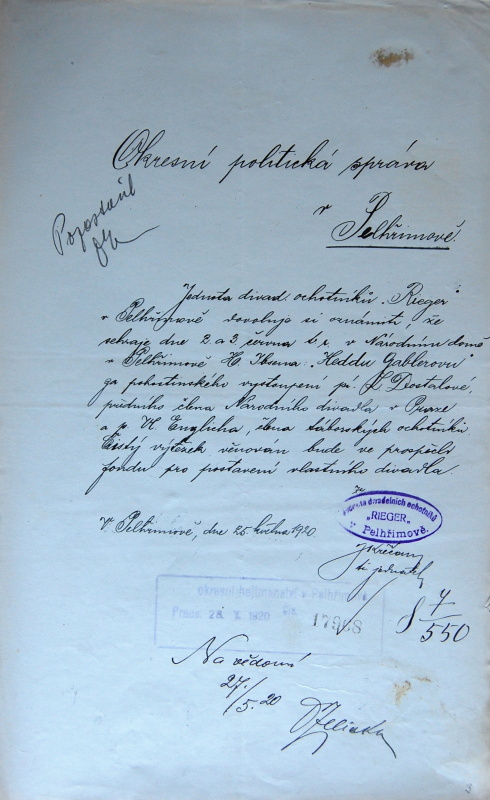 Okresní politická správa
v Pelhřimově.
Jednota divad. ochotníků „Rieger"
v Pelhřimově dovoluje si oznámiti, že
sehraje dne 2. a 3. června t. r. v Národním domě
v Pelhřimově H. Ibsena: „Heddu Gablerovu"
za pohostinského vystoupení pí. L. Dostalové,
předního člena Národního divadla v Praze
a p. K. Englicha, člena táborských ochotníků
Čistý výtěžek věnován bude ve prospěch
fondu pro postavení vlastního divadla.
Jednota divadelních ochotníků
„RIEGER"
v Pelhřimově.
V Pelhřimově, dne 25. května 1920.
t. č. jednatel
okresní hejtmanství v Pelhřimově
1920
7/550
Na vědomí
27./5. 20
3